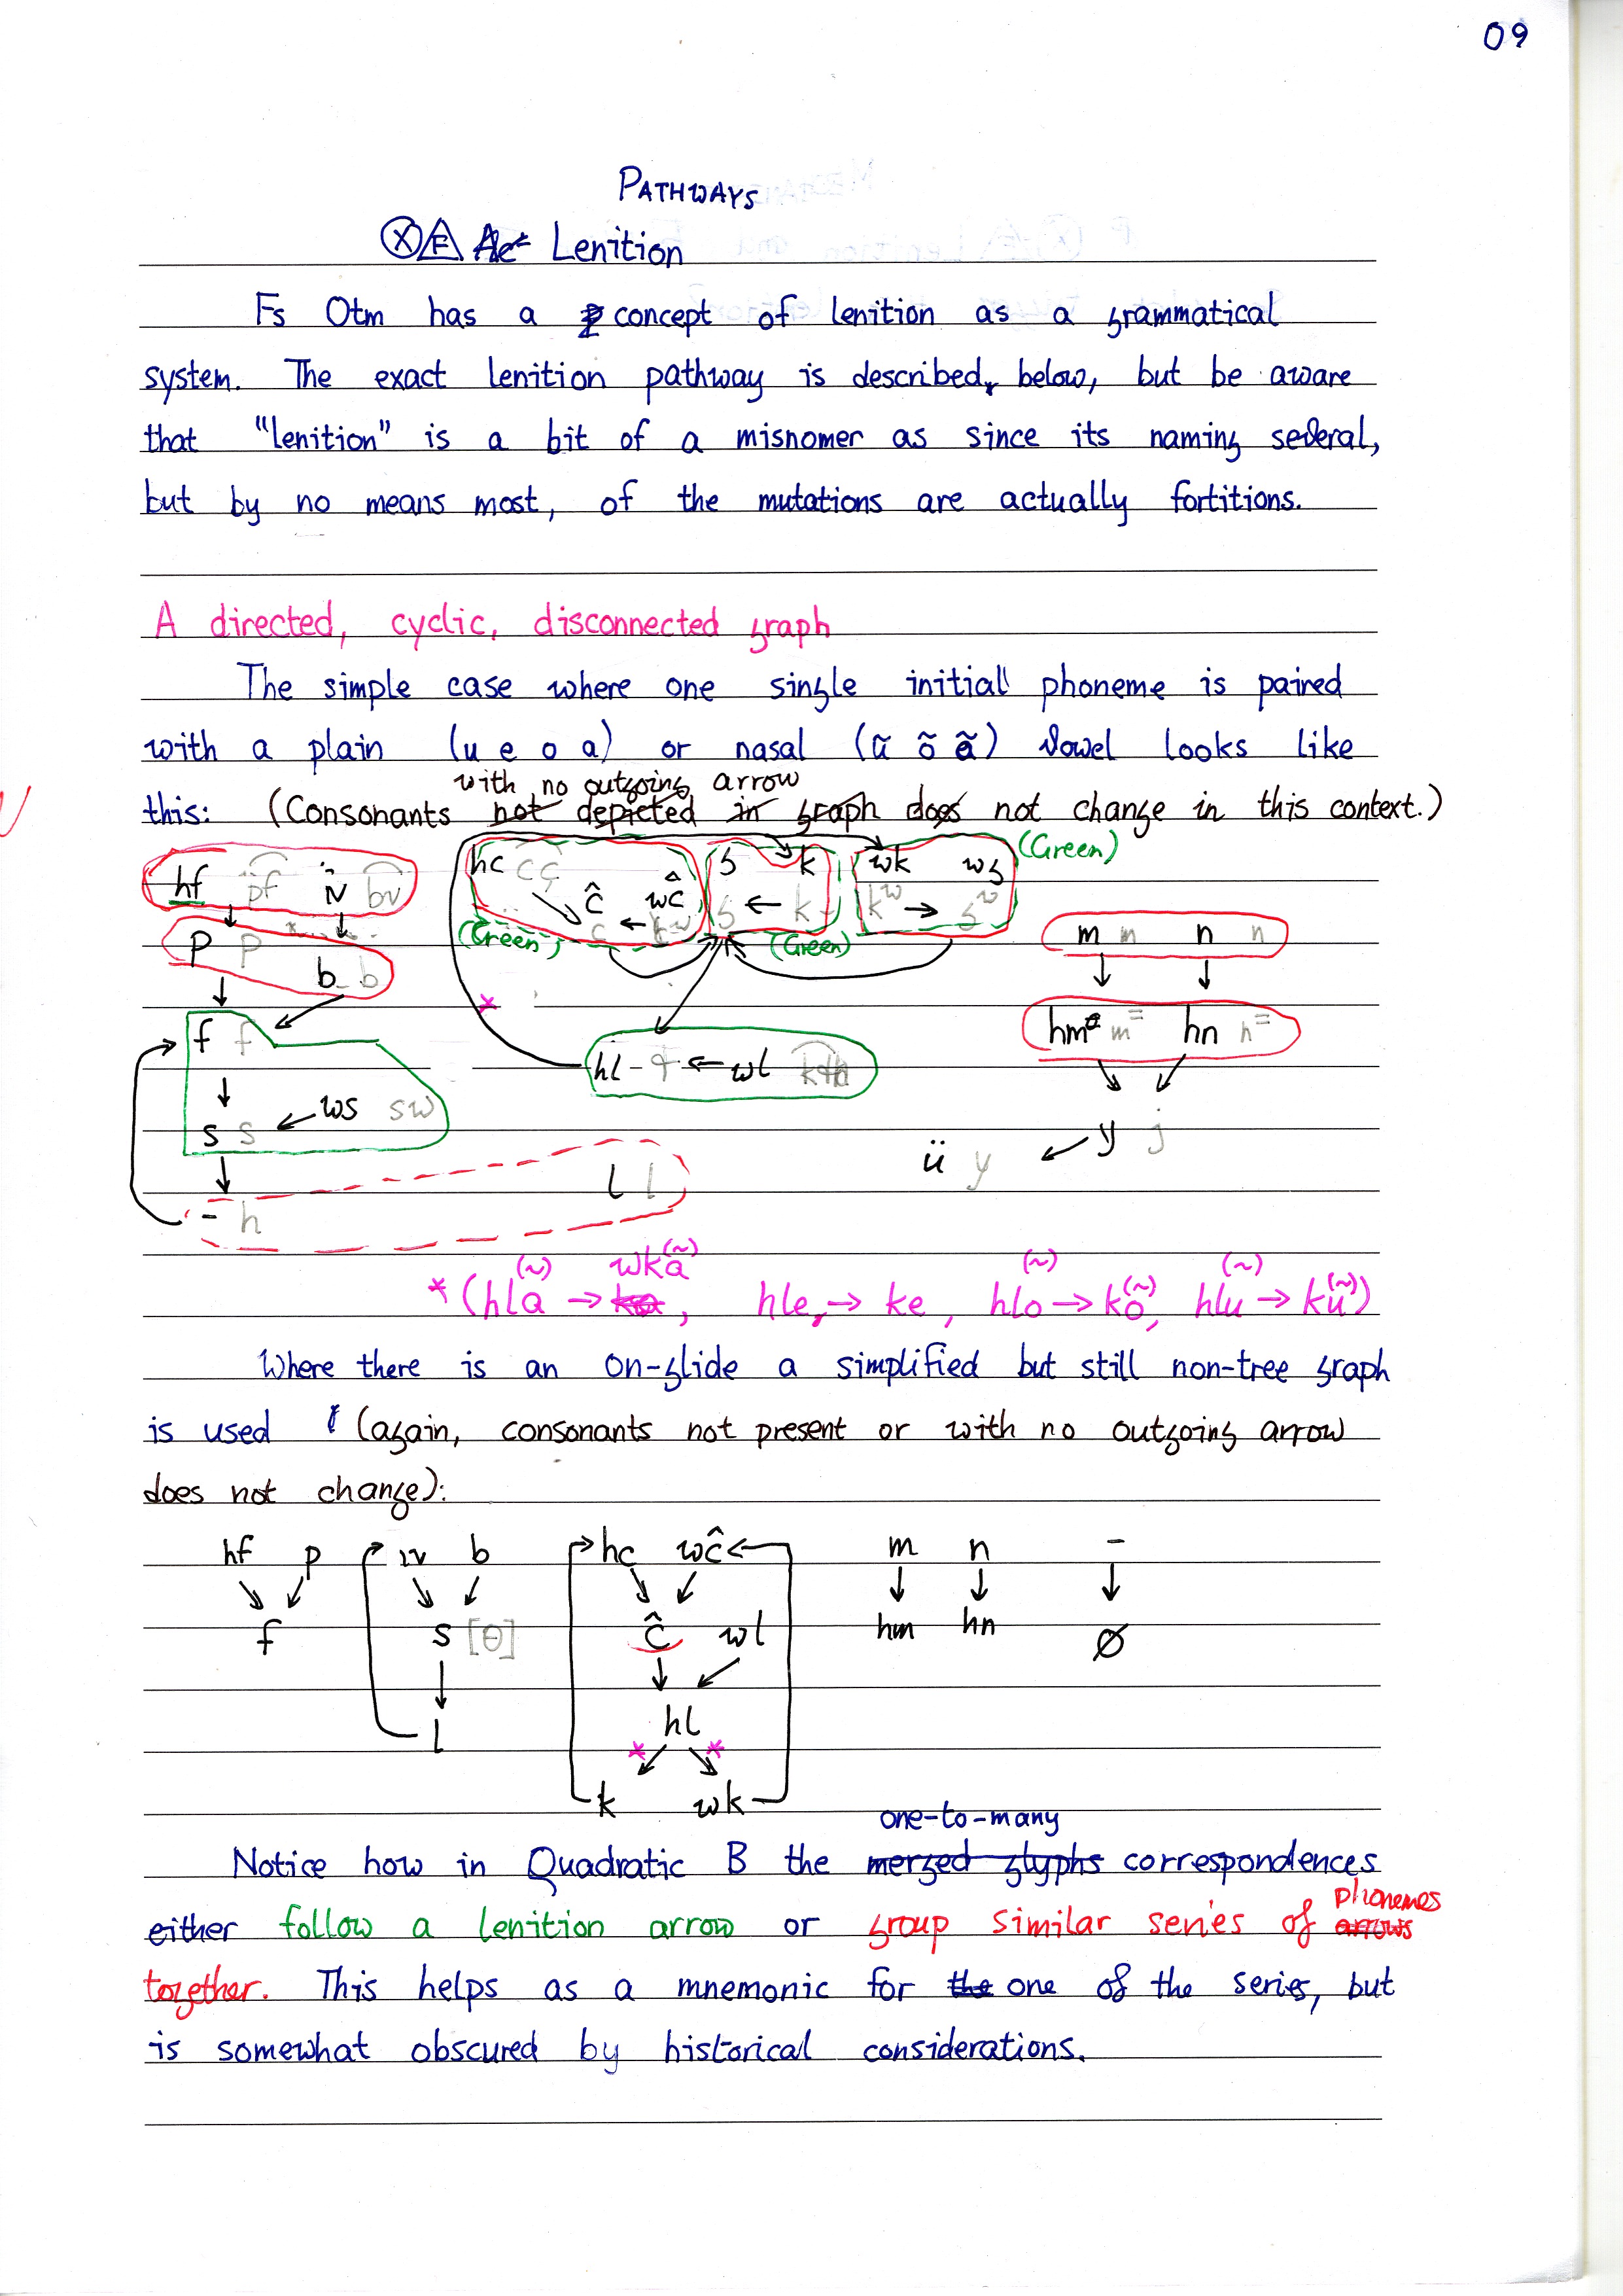 09
PATHWAYS
Lenition
Fs Otm has a concept of lenition as a grammatical
system. The exact lenition pathway is described, below, but be aware
that "lenition" is a bit of a misnomer as since its naming several,
but by no means most, of the mutations are actually fortitions.
A directed, cyclic, disconnected graph
The simple case where one single initial phoneme is paired
with a plain (u e o a) or nasal (ũ õ ã) vowel looks like
with no outgoing arrow
this: (Consonants not depicted in graph does not change in this context.)
hf p͡f v b͡v hc cç g k wk wg (Green)
ĉ wĉ g ← k kʷ → gʷ
p p (Green) (Green) m m n n
b b
f f hm hn
hl ← wl
ws sw
s s y j
ü y
l l
- h
(~) wka(~) (~) (~)
*(hla → ka, hle, → ke, hlo → ko(~), hlu → ku(~))
Where there is an on-glide a simplified but still non-tree graph
is used (again, consonants not present or with no outgoing arrow
does not change):
hf p v b hc wĉ m n -
f s [θ] ĉ wl hm hn ∅
l hl
* *
k wk
one-to-many
Notice how in Quadratic B the merged glyphs correspondences
phonemes
either follow a lenition arrow or group similar series of arrows
together. This helps as a mnemonic for the one of the series, but
is somewhat obscured by historical considerations.